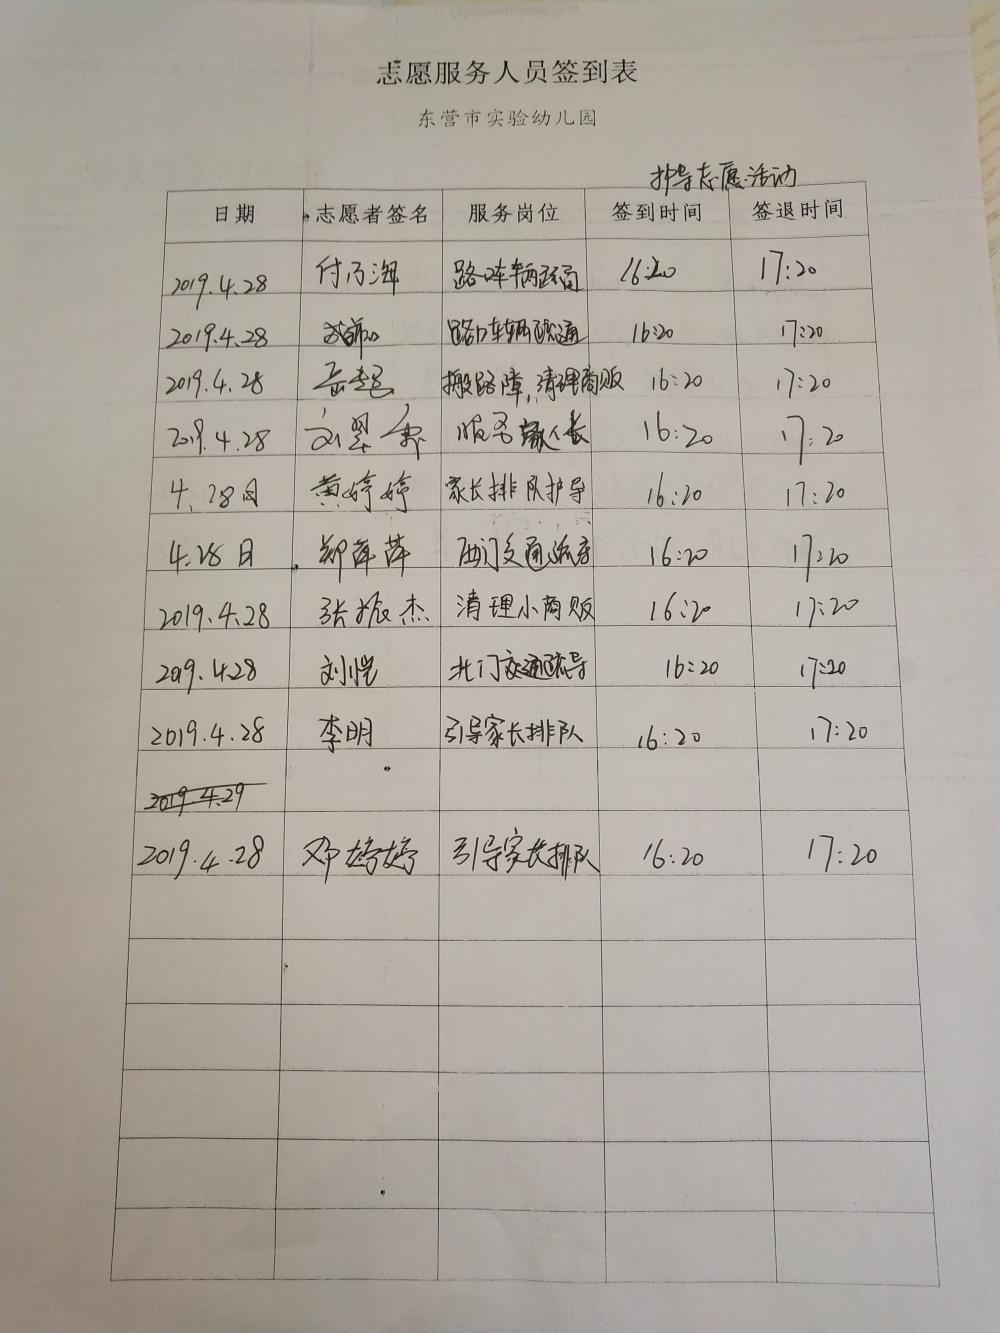 志愿服务人员签到表
东营市实验幼儿园
护导志愿活动
日期 志愿者签名 服务岗位 签到时间 签退时间
2019.4.28 路口车辆疏 16:20 17:20
2019.4.28 路口车辆疏通 16:20 17:20
2019.4.28 岳超 搬路障,清理商贩 16:20 17:20
2019.4.28 刘翠 服务 家长 16:20 17:20
4.28日 黄婷婷 家长排队护导 16:20 17:20
4.28日 郑萍萍 西门交通疏导 16:20 17:20
2019.4.28 张振杰 清理小商贩 16:20 17:20
2019.4.28 刘恺 北门交通疏导 16:20 17:20
2019.4.28 李明 引导家长排队 16:20 17:20
2019.4.29
2019.4.28 邓婷婷 引导家长排队 16:20 17:20